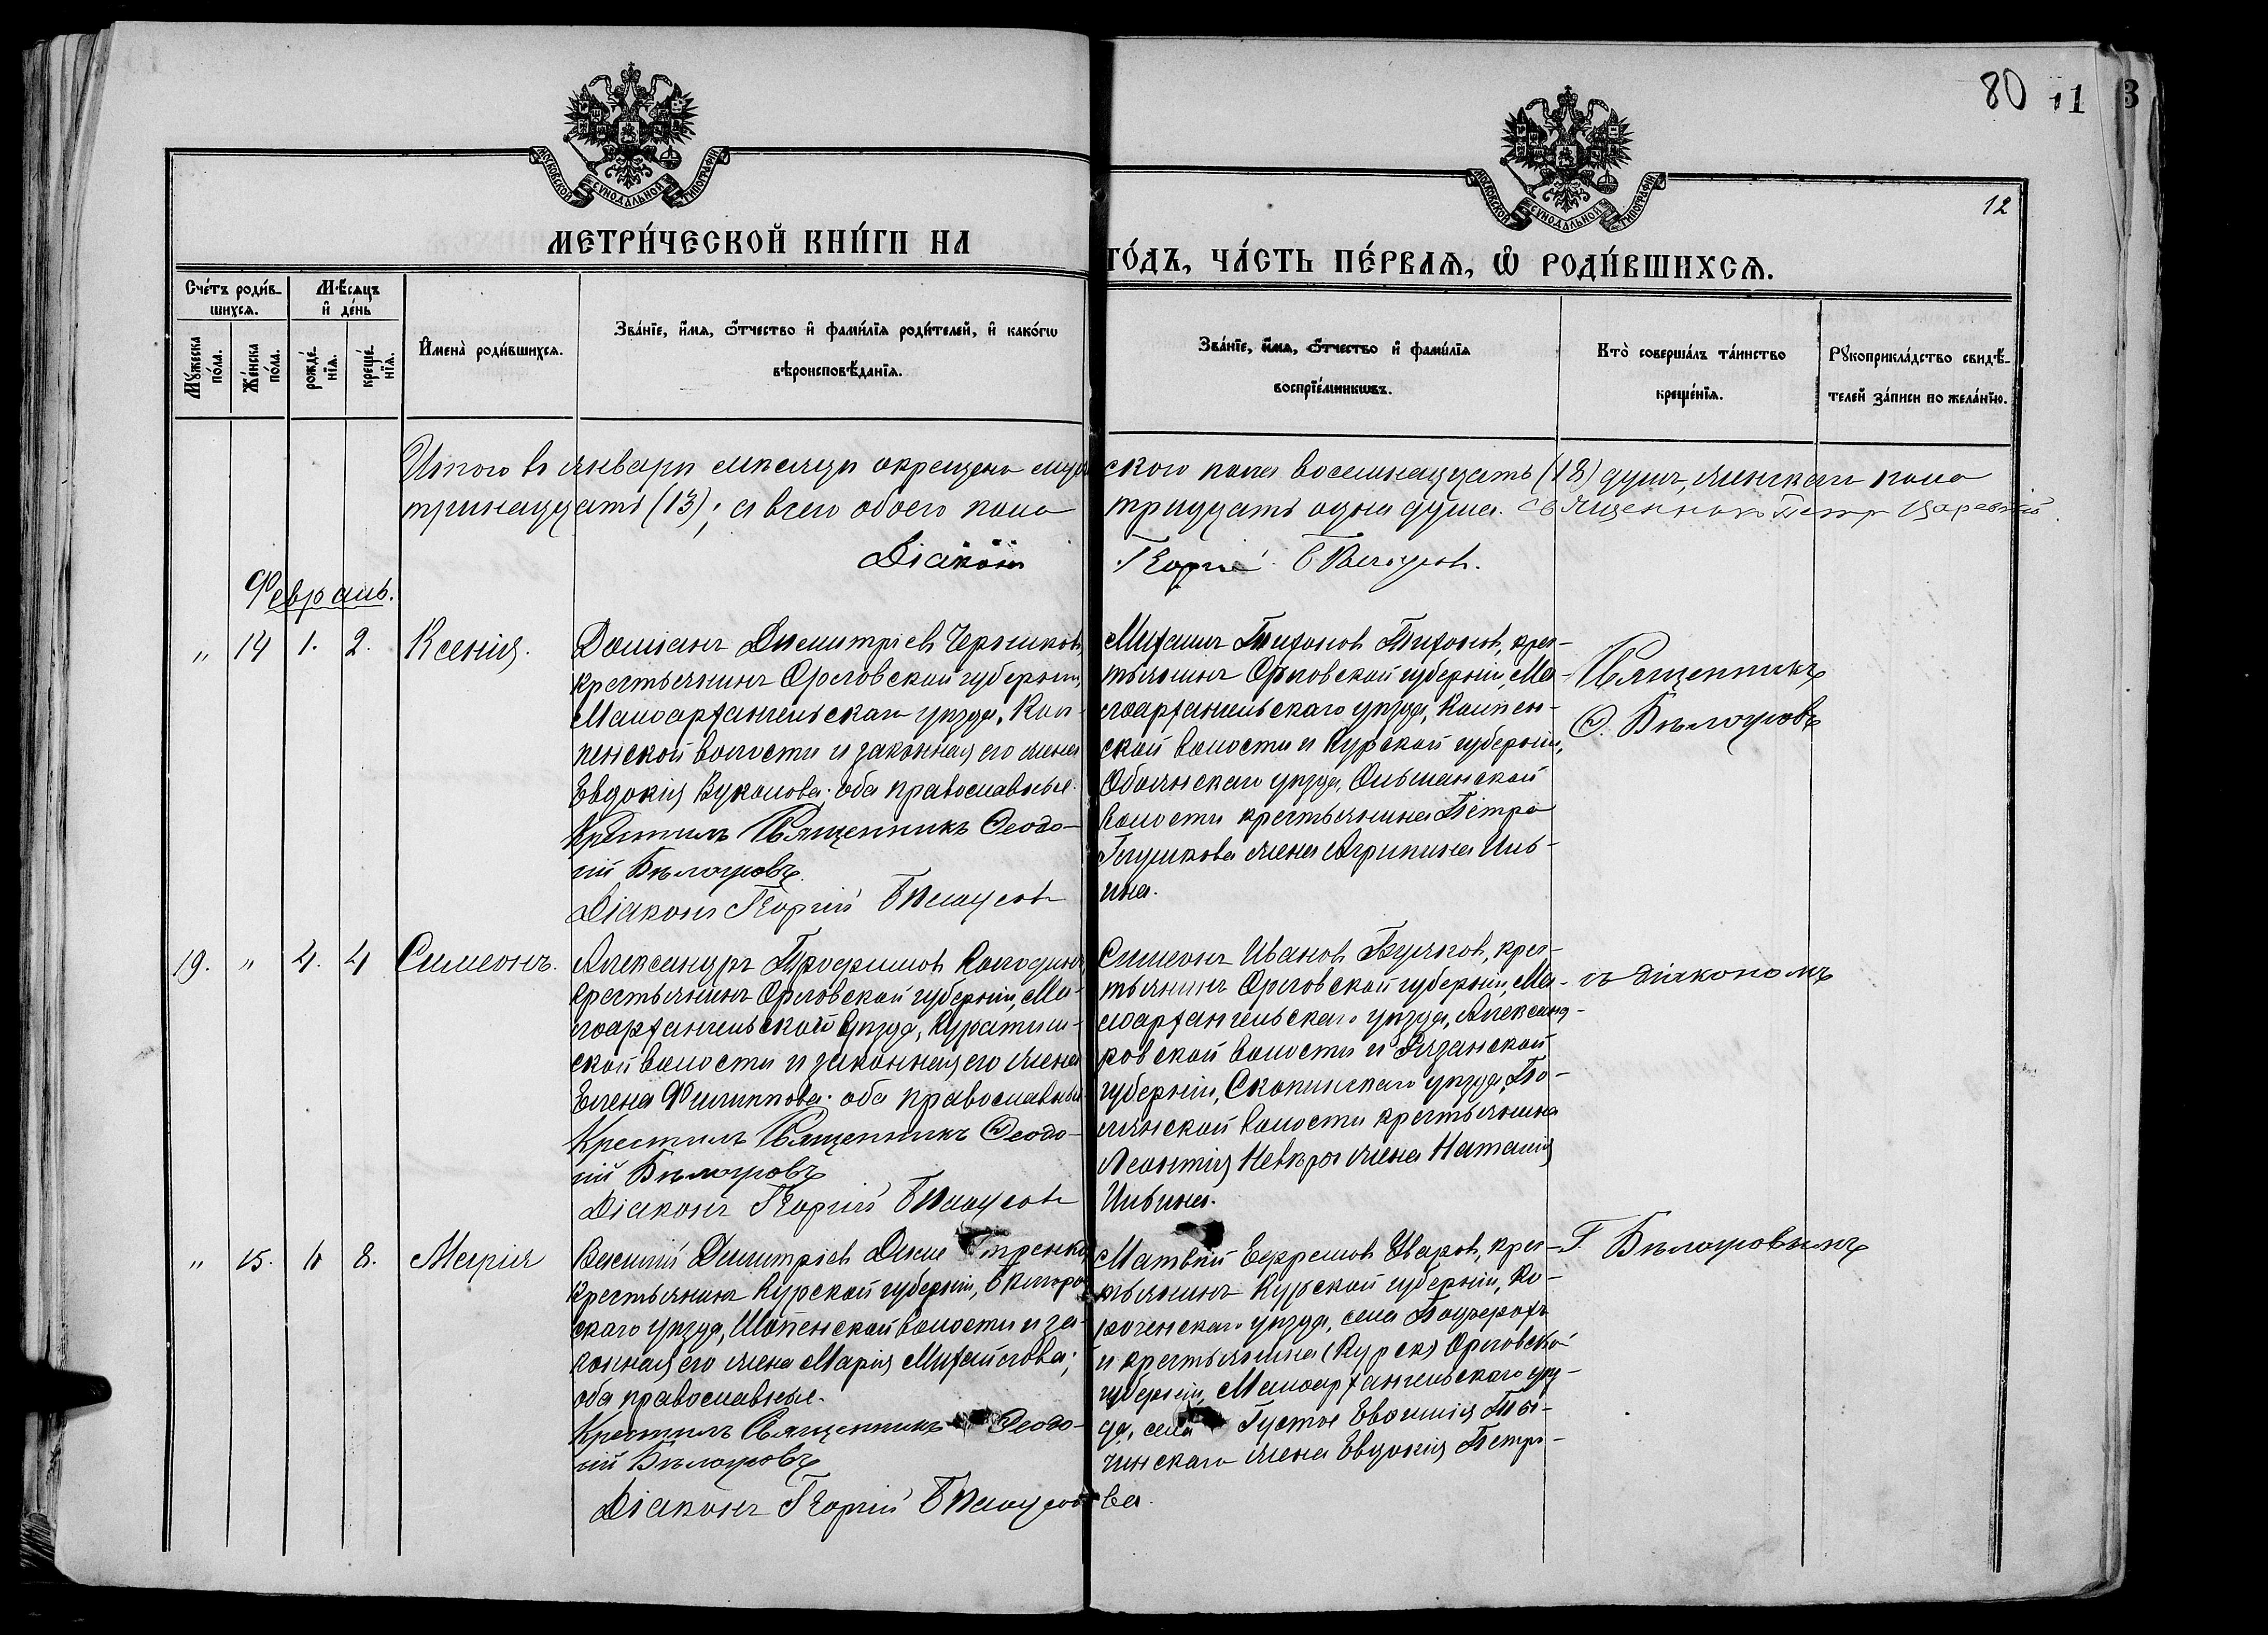 80
11
3
МОСКОВСКОЙ СѴНОДАЛЬНОЙ ТИПОГРАФІИ
МОСКОВСКОЙ СѴНОДАЛЬНОЙ ТИПОГРАФІИ
12
МЕТРИ́ЧЕСКОЙ КНИ́ГИ НА
ГО́ДЪ, ЧА́СТЬ ПЕ́РВАѦ, Ѡ҆ РОДИ́ВШИХСѦ.
Сче́тъ роди́в-
шихсѧ.
Мѣ́сяцъ
и҆ де́нь
Мꙋ́жеска по́ла.
Же́нска по́ла.
рожде́-
нїѧ.
креще́-
нїѧ.
И҆мена̀ роди́вшихсѧ.
Зва́нїе, и҆́мѧ, ѻ҆́тчество и҆ фамѝлїѧ роди́телей, и҆ како́гѡ
вѣроисповѣ́данїѧ.
Зва́нїе, и҆́мѧ, ѻ҆́тчество и҆ фами́лїѧ
воспрїе́мникѡвъ.
Кто̀ соверша́лъ та́инство
креще́нїѧ.
Рꙋкоприкла́дство свидѣ́-
телей за́писи по жела́нїю.
Итого въ январѣ мѣсяцѣ окрещено муже
скаго пола восемнадцать (18) душъ, женскаго пола
тринадцать (13); а всего обоего пола
тридцать одна душа. Священникъ Петръ Царевскій
Діаконъ
Георгій Бѣлоусовъ.
Февраль.
" 14 1. 2. Ксенія.
Доміанъ Димитріевъ Черниковъ,
крестьянинъ Орловской губерніи,
Малоархангельскаго уѣзда, Кол-
пенской волости и законная его жена
Евдокія Вуколова. оба православные.
Крестилъ Священникъ Феодо-
ій Бѣлоусовъ.
Діаконъ Георгій Бѣлоусовъ
Михаилъ Тихоновъ Тихоновъ, крес-
тьянинъ Орловской губерніи, Ма-
лоархангельскаго уѣзда, Колпен-
ской волости и Курской губерніи,
Обоянскаго уѣзда, Ольшанской
волости крестьянина Петра
Глушкова жена Агрипина Иль-
ина.
Священникъ
Ѳ. Бѣлоусовъ
19. " 4. 4 Симеонъ.
Александръ Трофимовъ Колодинъ,
крестьянинъ Орловской губерніи, Ма-
лоархангельскаго уѣзда,
ской волости и законная его жена
Елена Филиппова. оба православные
Крестилъ Священникъ Феодо-
ій Бѣлоусовъ
Діаконъ Георгій Бѣлоусовъ
Симеонъ Ивановъ крес-
тьянинъ Орловской губерніи, Ма-
лоархангельскаго уѣзда, Александ-
ровской волости и Рязанской
губерніи, Скопинскаго уѣзда, По-
лянской волости крестьянина
Леонтія жена Наталія
Ильина.
съ діакономъ
" 15. 6 8. Марія
Василій Димитріевъ
крестьянинъ Курской губерніи, Бѣлгород
скаго уѣзда, Шопенской волости и за-
конная его жена Марія Михайлова;
оба православные.
Крестилъ Священникъ Феодо-
ій Бѣлоусовъ
Діаконъ Георгій Бѣлоусовъ
Матвѣй Ефремовъ Уваровъ, крес-
тьянинъ Курской губерніи, Ко-
роченскаго уѣзда, села
и крестьянина (Курск) Орловской
губерніи, Малоархангельскаго уѣз-
да, села Густое
жена Евдокія Петро-
ва.
Г. Бѣлоусовымъ